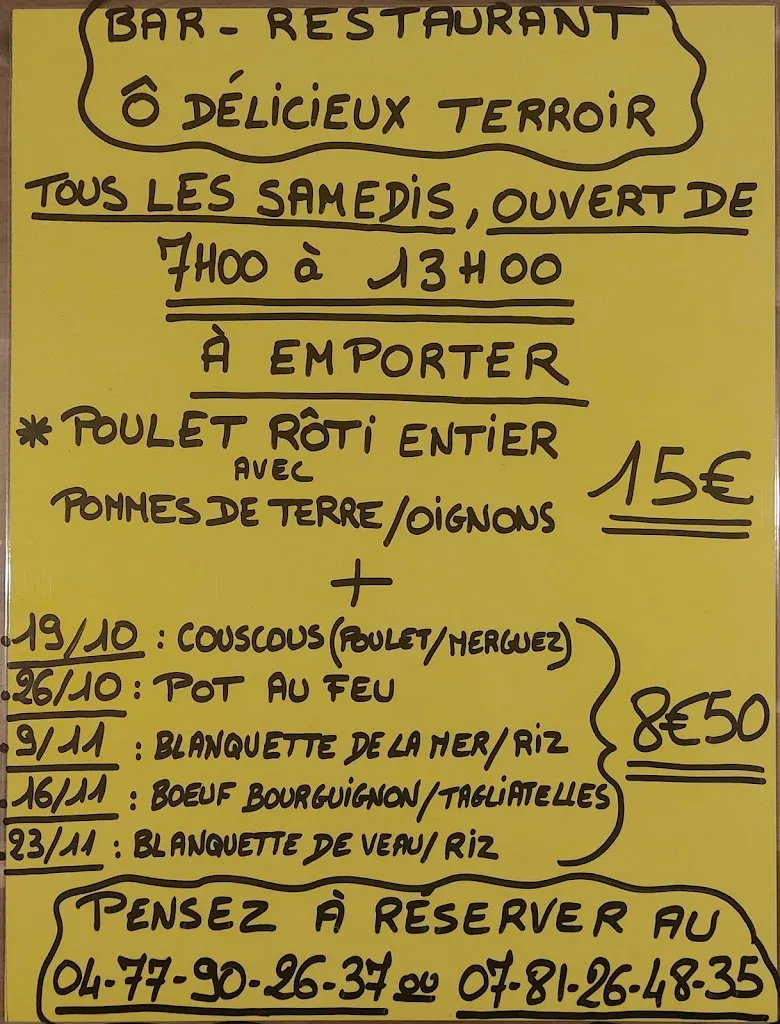 BAR - RESTAURANT
Ô DÉLICIEUX TERROIR
TOUS LES SAMEDIS, OUVERT DE
7H00 à 13H00
À EMPORTER
* POULET RÔTI ENTIER
AVEC
POMMES DE TERRE/OIGNONS
15€
+
.19/10 : COUSCOUS (POULET/MERGUEZ)
.26/10 : POT AU FEU
.9/11 : BLANQUETTE DE LA MER/RIZ
8€50
.16/11 : BOEUF BOURGUIGNON/TAGLIATELLES
.23/11 : BLANQUETTE DE VEAU/RIZ
PENSEZ À RÉSERVER AU
04-77-90-26-37 ou 07-81-26-48-35